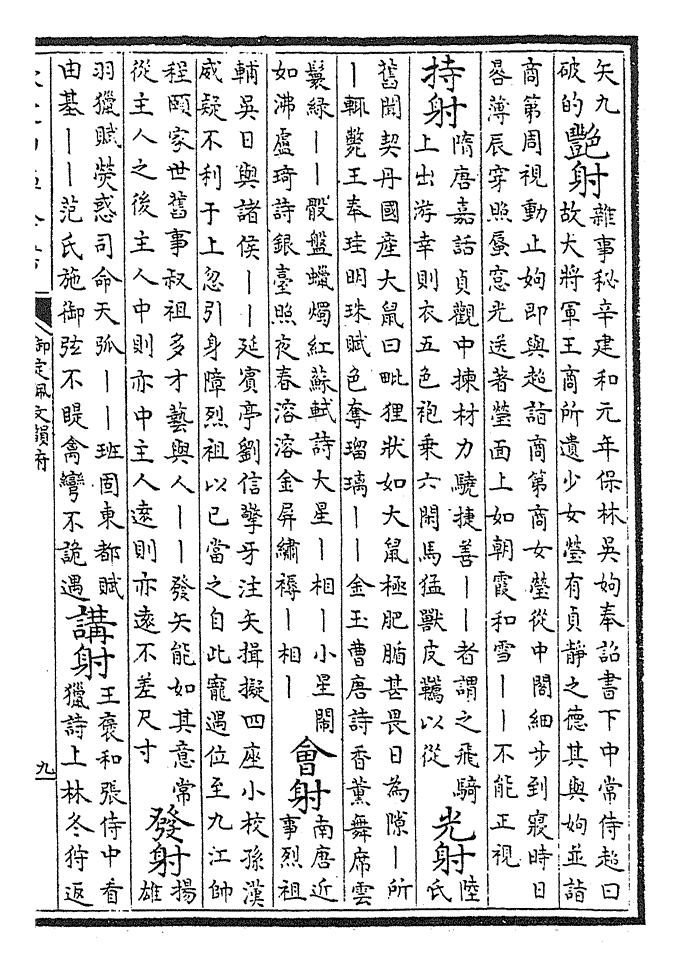 矢九
破的
艷射
雜事秘辛建和元年保林吳姁奉詔書下中常侍超曰
故大將軍王商所遺少女瑩有貞靜之德其與姁並詣
商第周視動止姁即與超詣商第商女瑩從中閤細步到寢時日
晷薄辰穿照蜃窓光送著瑩面上如朝霞和雪丨丨不能正視
持射
隋唐嘉話貞觀中揀材力驍捷善丨丨者謂之飛騎
上出游幸則衣五色袍乘六閑馬猛獸皮韉以從
光射
陸
氏
舊聞契丹國產大鼠曰毗狸狀如大鼠極肥腯甚畏日為隙丨所
丨輒斃王奉珪明珠賦色奪瑠璃丨丨金玉曹唐詩香薰舞席雲
鬟綠丨丨骰盤蠟燭紅蘇軾詩大星丨相丨小星鬧
如沸盧琦詩銀臺照夜春溶溶金屏繡褥丨相丨
會射
南唐近
事烈祖
輔吳日與諸侯丨丨延賓亭劉信擎牙注矢揖擬四座小校孫漢
威疑不利于上忽引身障烈祖以已當之自此寵遇位至九江帥
程頤家世舊事叔祖多才藝與人丨丨發矢能如其意常
從主人之後主人中則亦中主人遠則亦遠不差尺寸
發射
揚
雄
羽獵賦熒惑司命天弧丨丨班固東都賦
由基丨丨范氏施御弦不睼禽轡不詭遇
講射
王褒和張侍中看
獵詩上林冬狩返
御定佩文韻府
九